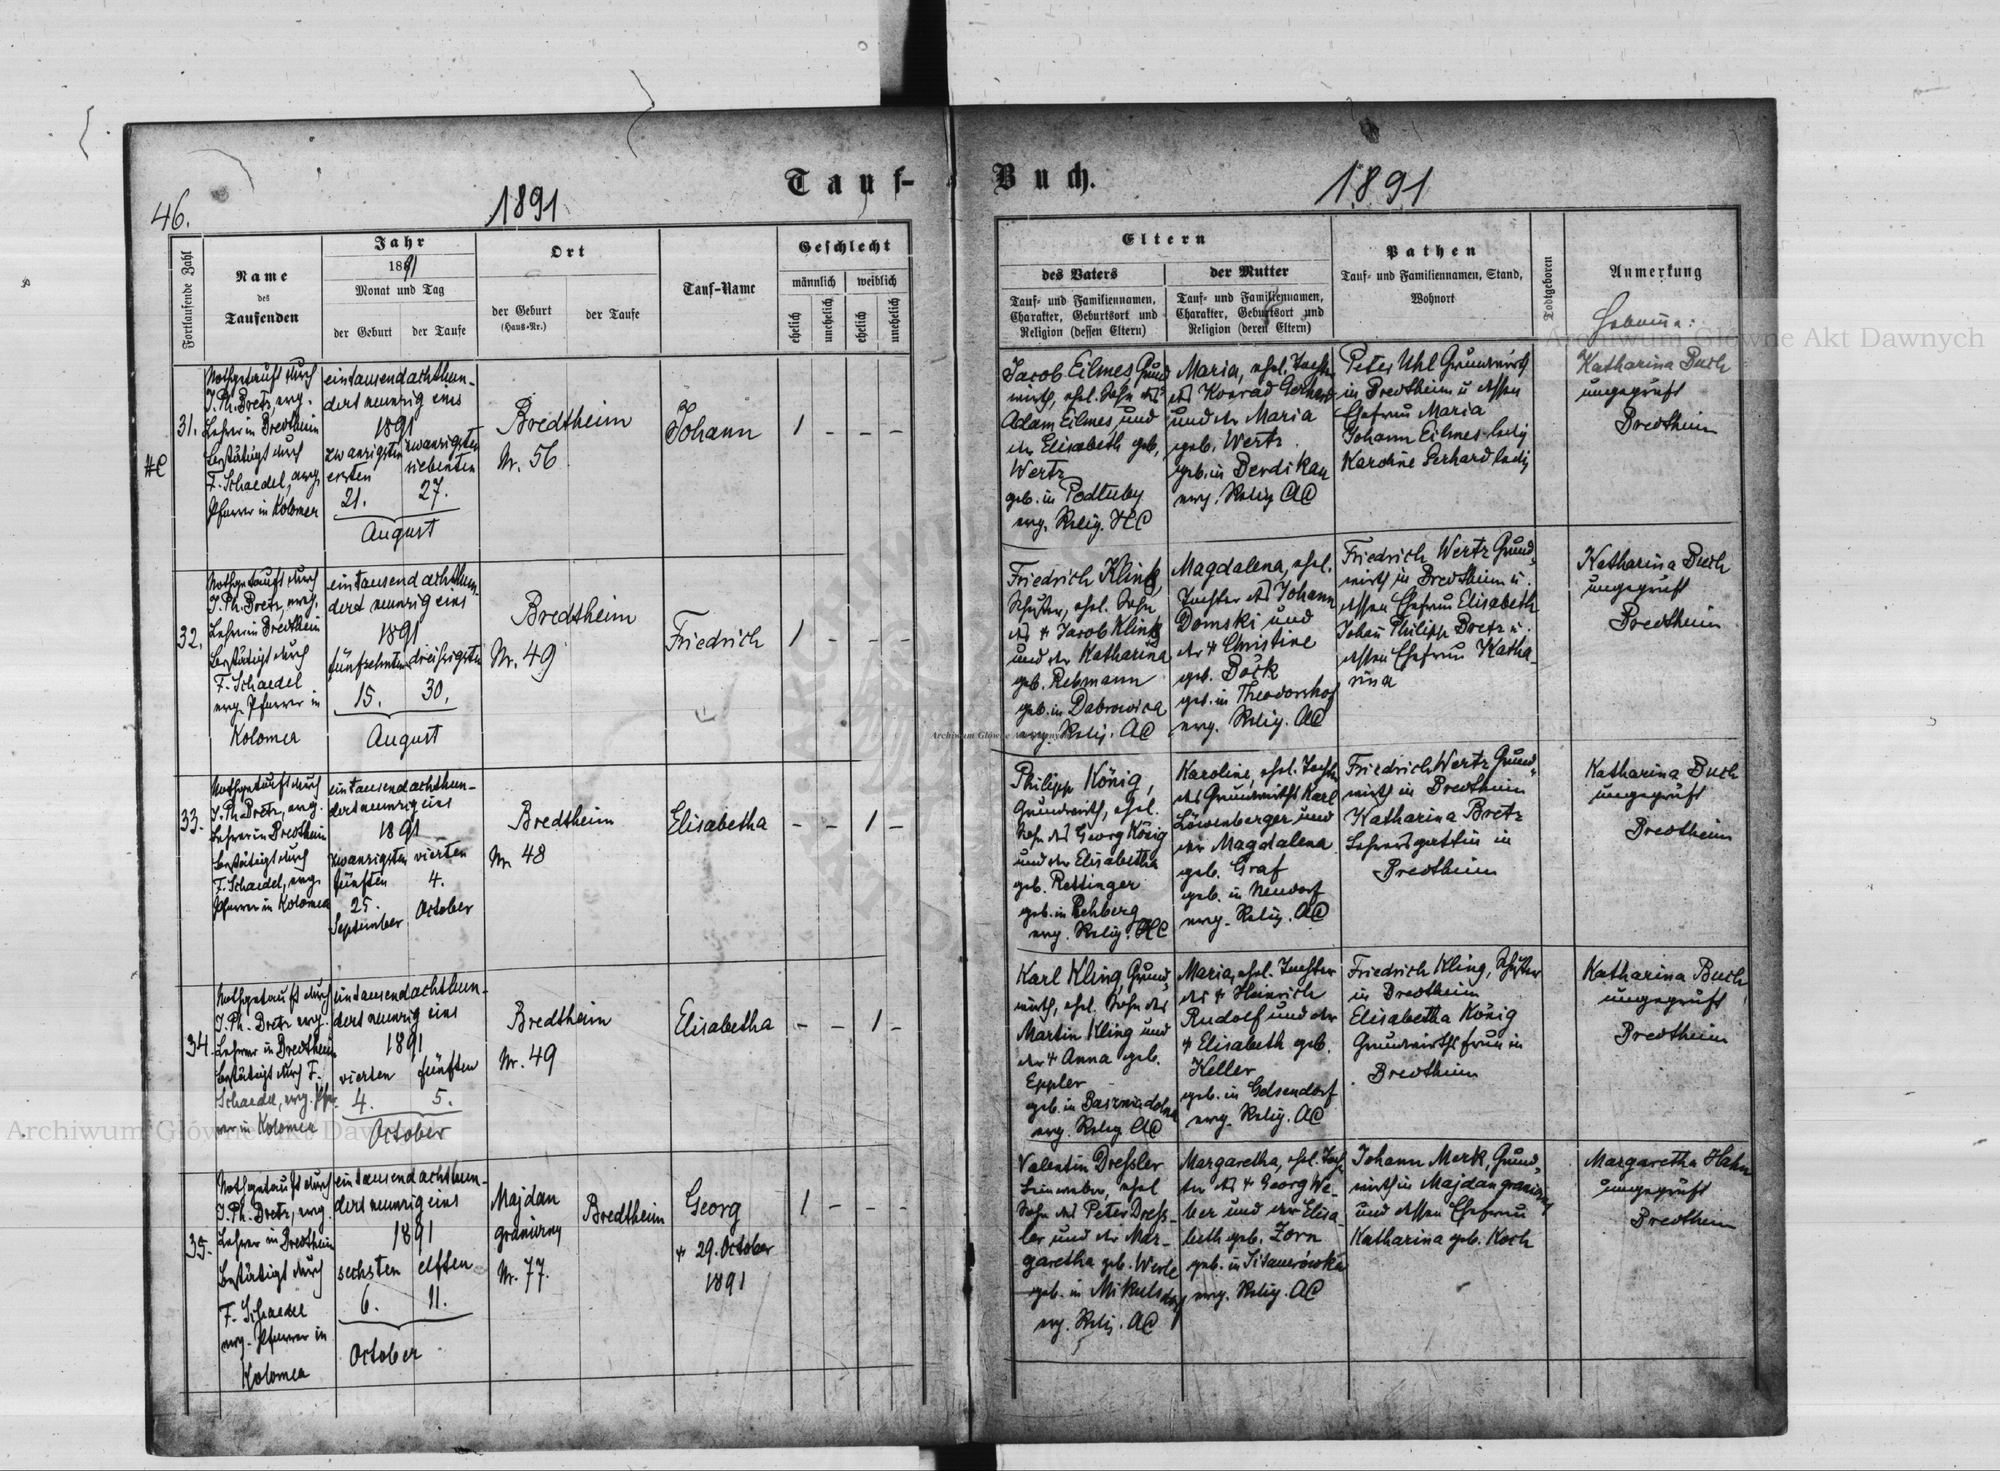 Tauf-
Buch.
46.
1891
1891
Fortlaufende Zahl
Name
des
Taufenden
Jahr
1891
Monat und Tag
der Geburt
der Taufe
Ort
der Geburt
(Haus-Nr.)
der Taufe
Tauf-Name
Geschlecht
männlich
weiblich
ehelich
unehelich
ehelich
unehelich
Eltern
des Vaters
Tauf- und Familiennamen,
Charakter, Geburtsort und
Religion (dessen Eltern)
der Mutter
Tauf- und Familiennamen,
Charakter, Geburtsort und
Religion (deren Eltern)
Pathen
Tauf- und Familiennamen, Stand,
Wohnort
Todtgeboren
Anmerkung
HC
31.
Nothgetauft durch
J. Ph. Bretz, evg.
Lehrer in Bredtheim
bestätigt durch
F. Schaedel, evg.
Pfarrer in Kolomea
eintausendachthun-
dert neunzig eins
1891
zwanzigsten
ersten
21.
zwanzigsten
siebenten
27.
August
Bredtheim
Nr. 56
Johann
1 - - -
Jacob Eilmes Grund
wirth, ehel. Sohn des
Adam Eilmes und
der Elisabeth geb.
Wertz
geb. in Podłuby
evg. Relig. HC
Maria, ehel. Tochter
des Konrad Gerhard
und der Maria
geb. Wertz
geb. in Derdikau
evg. Relig. AC
Peter Uhl Grundwirth
in Bredtheim u. dessen
Ehefrau Maria
Johann Eilmes ledig
Karoline Gerhard ledig
Katharina Buch
ungeprüft
Bredtheim
32.
Nothgetauft durch
J. Ph. Bretz, evg.
Lehrer in Bredtheim
bestätigt durch
F. Schaedel
evg. Pfarrer in
Kolomea
eintausend achthun-
dert neunzig eins
1891
fünfzehnten
15.
dreissigsten
30.
August
Bredtheim
Nr. 49
Friedrich
1 - - -
Friedrich Kling
Schuster, ehel. Sohn
des + Jacob Kling
und der Katharina
geb. Rebmann
geb. in Dabrowica
evg. Relig. AC
Magdalena, ehel.
Tochter des Johann
Domski und
der + Christine
geb. Böck
geb. in Theodorshof
evg. Relig. AC
Friedrich Wertz Grund-
wirth in Bredtheim u.
dessen Ehefrau Elisabeth
Johan Philipp Bretz u.
dessen Ehefrau Katha-
rina
Katharina Buch
ungeprüft
Bredtheim
33.
Nothgetauft durch
J. Ph. Bretz, evg.
Lehrer in Bredtheim
bestätigt durch
F. Schaedel, evg.
Pfarrer in Kolomea
eintausend achthun-
dert neunzig eins
1891
zwanzigsten
fünften
25.
September
vierten
4.
October
Bredtheim
Nr. 48
Elisabetha
- - 1 -
Philipp König,
Grundwirth, ehel.
Sohn des Georg König
und der Elisabetha
geb. Rettinger
geb. in Rehberg
evg. Relig. HC
Karoline, ehel. Tochter
des Grundwirths Karl
Löwenberger und
der Magdalena
geb. Graf
geb. in Neudorf
evg. Relig. AC
Friedrich Wertz Grund-
wirth in Bredtheim
Katharina Bretz
Lehrersgattin in
Bredtheim
Katharina Buch
ungeprüft
Bredtheim
34.
Nothgetauft durch
J. Ph. Bretz evg.
Lehrer in Bredtheim
bestätigt durch F.
Schaedel, evg. Pfar-
rer in Kolomea
eintausendachthun-
dert neunzig eins
1891
vierten
4.
fünften
5.
October
Bredtheim
Nr. 49
Elisabetha
- - 1 -
Karl Kling, Grund-
wirth, ehel. Sohn des
Martin Kling und
der + Anna geb.
Eppler
evg. Relig. AC
Maria, ehel. Tochter
des + Heinrich
Rudolf und der
+ Elisabeth geb.
Keller
geb. in Gelsendorf
evg. Relig. AC
Friedrich Kling, Schuster
in Bredtheim
Elisabetha König
Grundwirthsfrau in
Bredtheim
Katharina Buch
ungeprüft
Bredtheim
35.
Nothgetauft durch
J. Ph. Bretz, evg.
Lehrer in Bredtheim
bestätigt durch
F. Schaedel
evg. Pfarrer in
Kolomea
eintausend achthun-
dert neunzig eins
1891
sechsten
6.
elften
11.
October
Majdan
graniczny
Nr. 77.
Bredtheim
Georg
+ 29. October
1891
1 - - -
Valentin Dressler
Leinweber, ehel
Sohn des Peter Dress-
ler und der Mar-
garetha geb. Werle
geb. in Mikulsdorf
evg. Relig. AC
Margaretha, ehel. Toch-
ter des + Georg We-
ber und der Elisa-
beth geb. Zorn
geb. in Sitauerówka
evg. Relig. AC
Johann Merk, Grund-
wirth in Majdan graniczny
und dessen Ehefrau
Katharina geb. Koch
Margaretha Hahn
ungeprüft
Bredtheim
Archiwum Główne Akt Dawnych
Archiwum Główne Akt Dawnych
Archiwum Główne Akt Dawnych